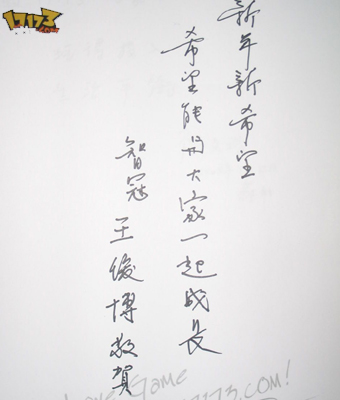 新年新希望
希望能與大家一起成長
智冠 王俊博敬賀
Love Game
17173.COM!
17173